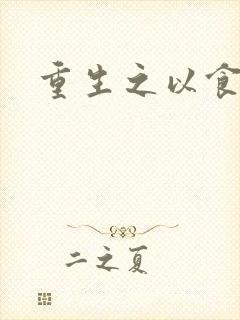 重生之以食
二之夏